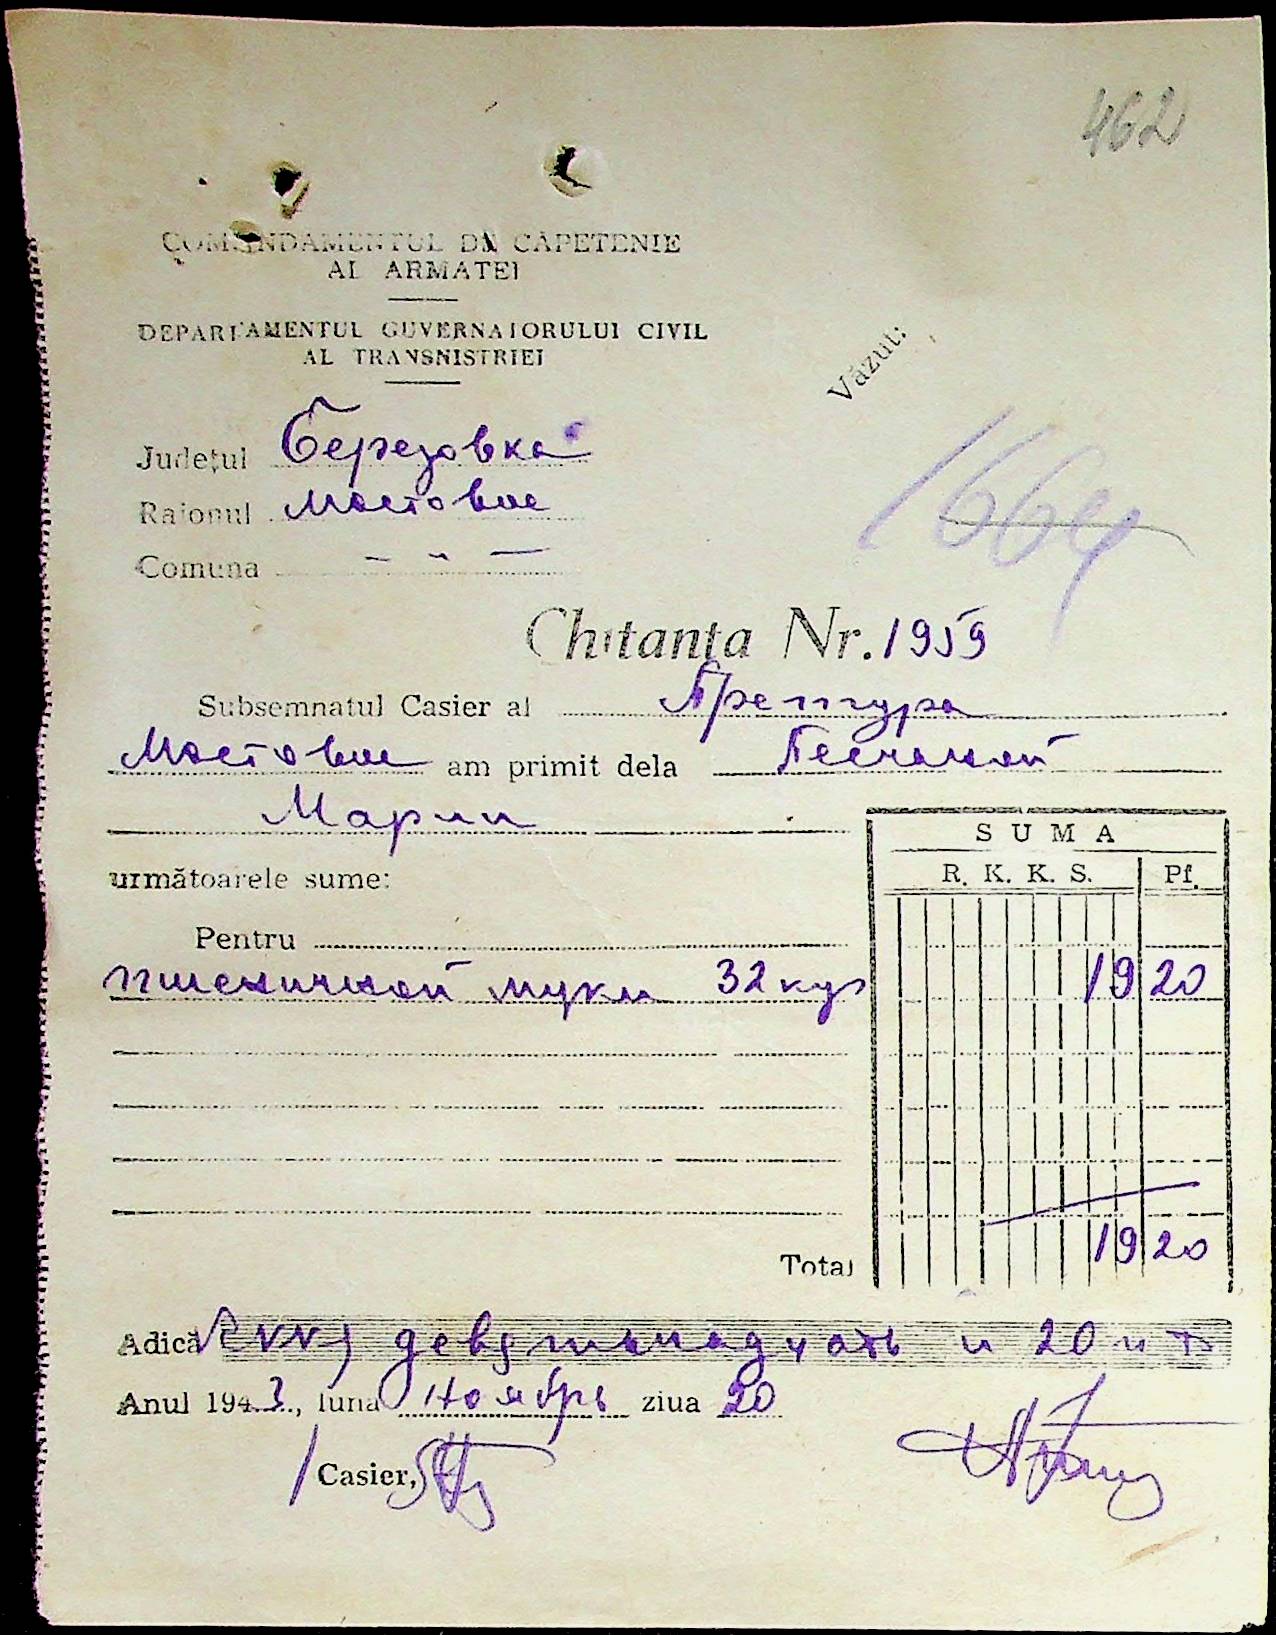 462
COMANDAMENTUL DE CAPETENIE
AL ARMATEI
DEPARTAMENTUL GUVERNATORULUI CIVIL
AL TRANSNISTRIEI
Văzut:
Județul Березовка
Raionul Мостовое
Comuna – " –
1664
Chitanța Nr. 1959
Subsemnatul Casier al Претура
Мостовое am primit dela Песчаной
Марии
SUMA
următoarele sume:
R. K. K. S. Pf.
Pentru
пшеничной муки 32 куг 19 20
Total 19 20
Adică девятьнадцать и 20 п
Anul 1943, luna Ноябрь ziua 20
Casier,